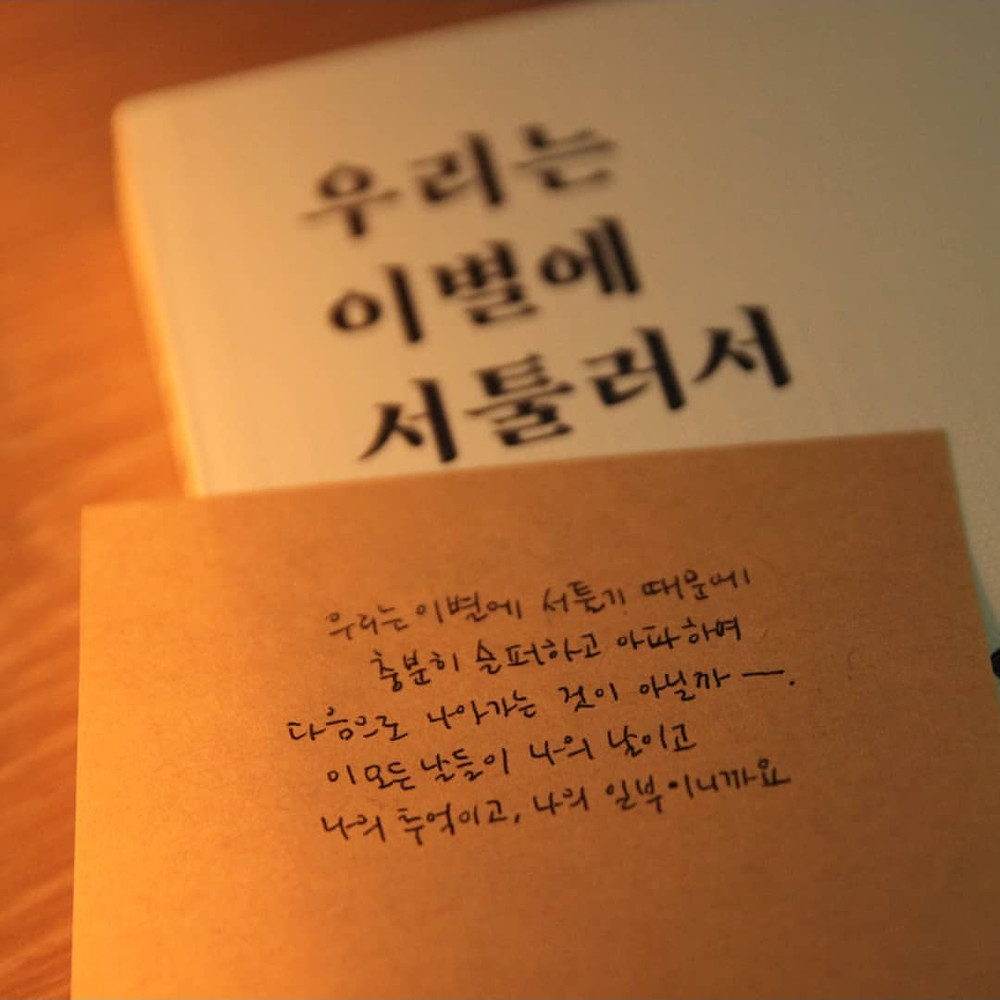 우리는
이별에
서툴러서
우리는 이별에 서툴기 때문에
충분히 슬퍼하고 아파하며
다음으로 나아가는 것이 아닐까 —.
이 모든 날들이 나의 날이고
나의 추억이고, 나의 일부이니까요